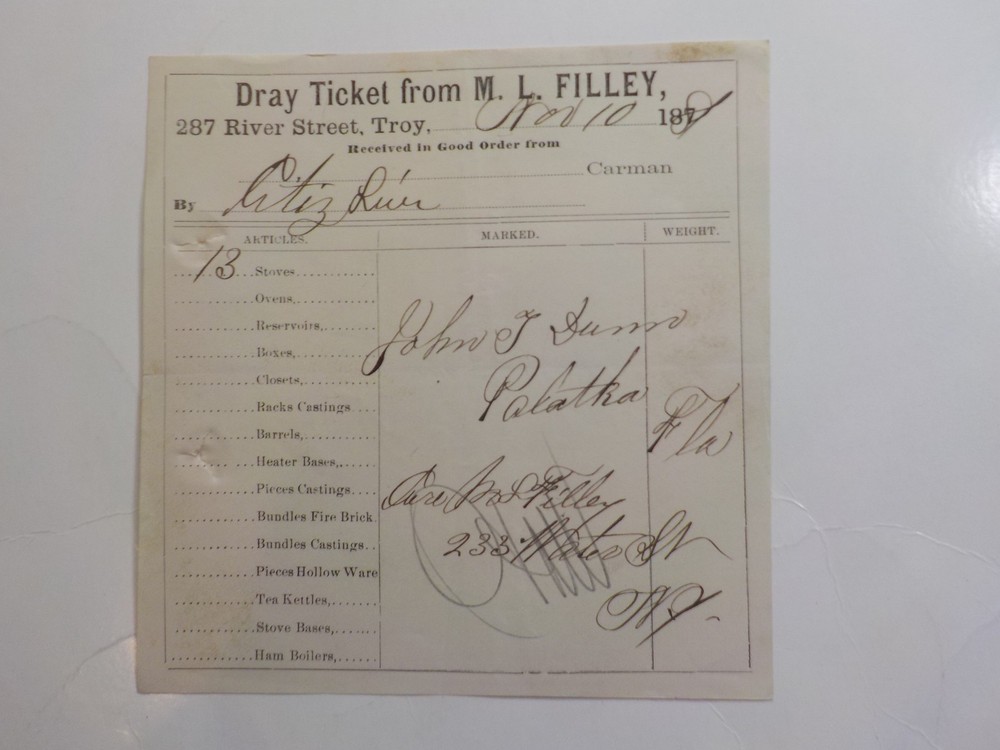 Dray Ticket from M. L. FILLEY,
287 River Street, Troy, Nov 10 187
Received in Good Order from
Carman
By Citiz Line
ARTICLES. MARKED. WEIGHT.
13 Stoves
Ovens,
Reservoirs,
Boxes,
Closets,
Racks Castings
Barrels,
Heater Bases,
Pieces Castings
Bundles Fire Brick
Bundles Castings
Pieces Hollow Ware
Tea Kettles,
Stove Bases,
Ham Boilers,
John T Dunn
Palatka
Fla
Care M L Filley
233 Water St
N.Y.